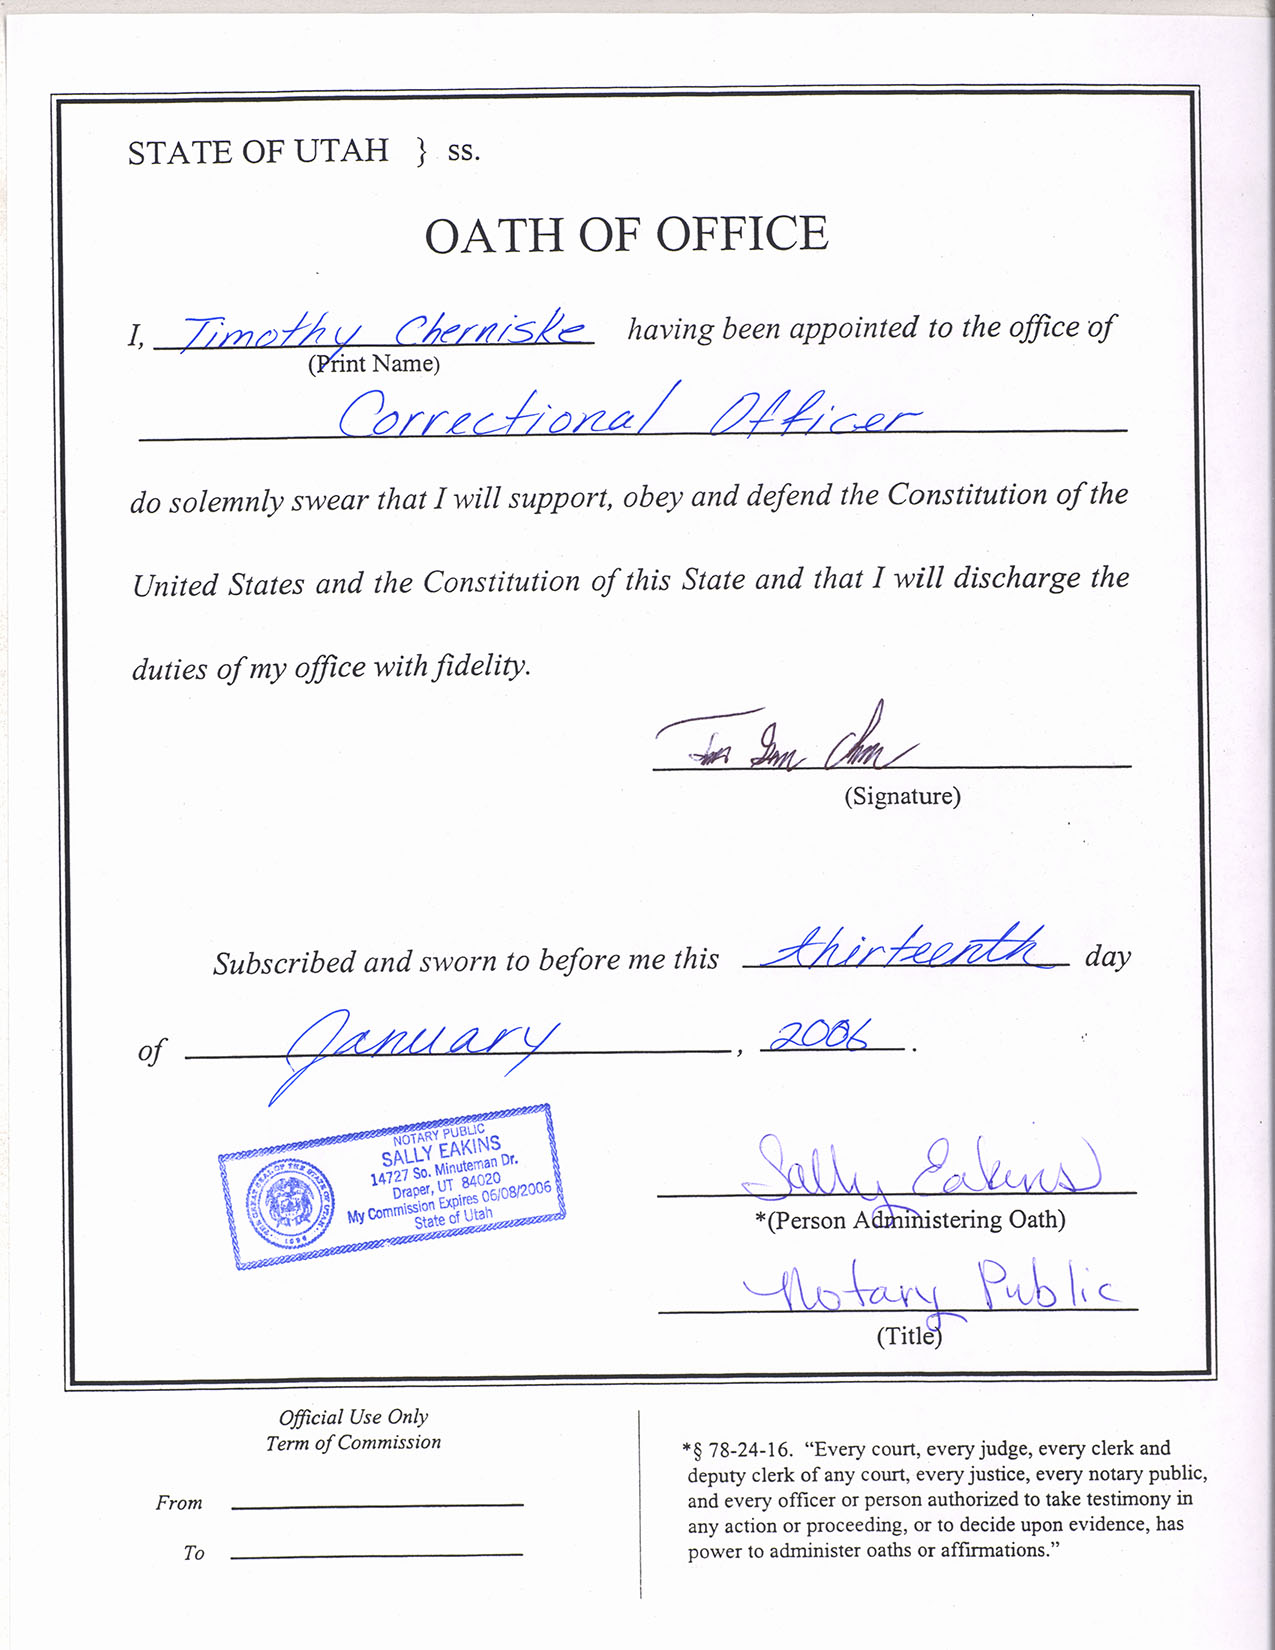 STATE OF UTAH } ss.
OATH OF OFFICE
I, Timothy Cherniske having been appointed to the office of
(Print Name)
Correctional Officer
do solemnly swear that I will support, obey and defend the Constitution of the
United States and the Constitution of this State and that I will discharge the
duties of my office with fidelity.
(Signature)
Subscribed and sworn to before me this thirteenth day
of January, 2006.
NOTARY PUBLIC
SALLY EAKINS
14727 So. Minuteman Dr.
Draper, UT 84020
My Commission Expires 06/08/2006
State of Utah
THE GREAT SEAL OF THE STATE OF UTAH
1896
Sally Eakins
*(Person Administering Oath)
Notary Public
(Title)
Official Use Only
Term of Commission
From
To
*§ 78-24-16. “Every court, every judge, every clerk and
deputy clerk of any court, every justice, every notary public,
and every officer or person authorized to take testimony in
any action or proceeding, or to decide upon evidence, has
power to administer oaths or affirmations.”